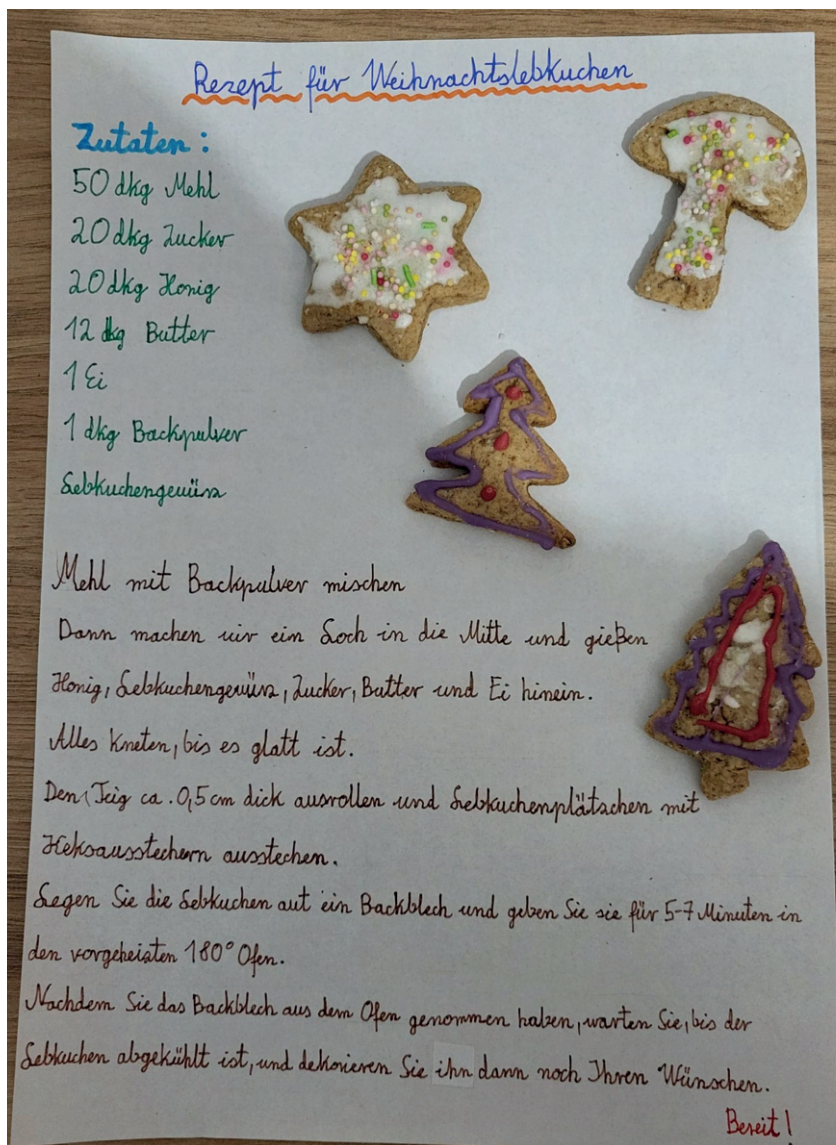 Rezept für Weihnachtslebkuchen
Zutaten:
50 dkg Mehl
20 dkg Zucker
20 dkg Honig
12 dkg Butter
1 Ei
1 dkg Backpulver
Lebkuchengewürz
Mehl mit Backpulver mischen
Dann machen wir ein Loch in die Mitte und gießen
Honig, Lebkuchengewürz, Zucker, Butter und Ei hinein.
Alles kneten, bis es glatt ist.
Den Teig ca. 0,5 cm dick ausrollen und Lebkuchenplätzchen mit
Keksausstechern ausstechen.
Legen Sie die Lebkuchen aut ein Backblech und geben Sie sie für 5-7 Minuten in
den vorgeheizten 180° Ofen.
Nachdem Sie das Backblech aus dem Ofen genommen haben, warten Sie, bis der
Lebkuchen abgekühlt ist, und dekorieren Sie ihn dann noch Ihren Wünschen.
Bereit!